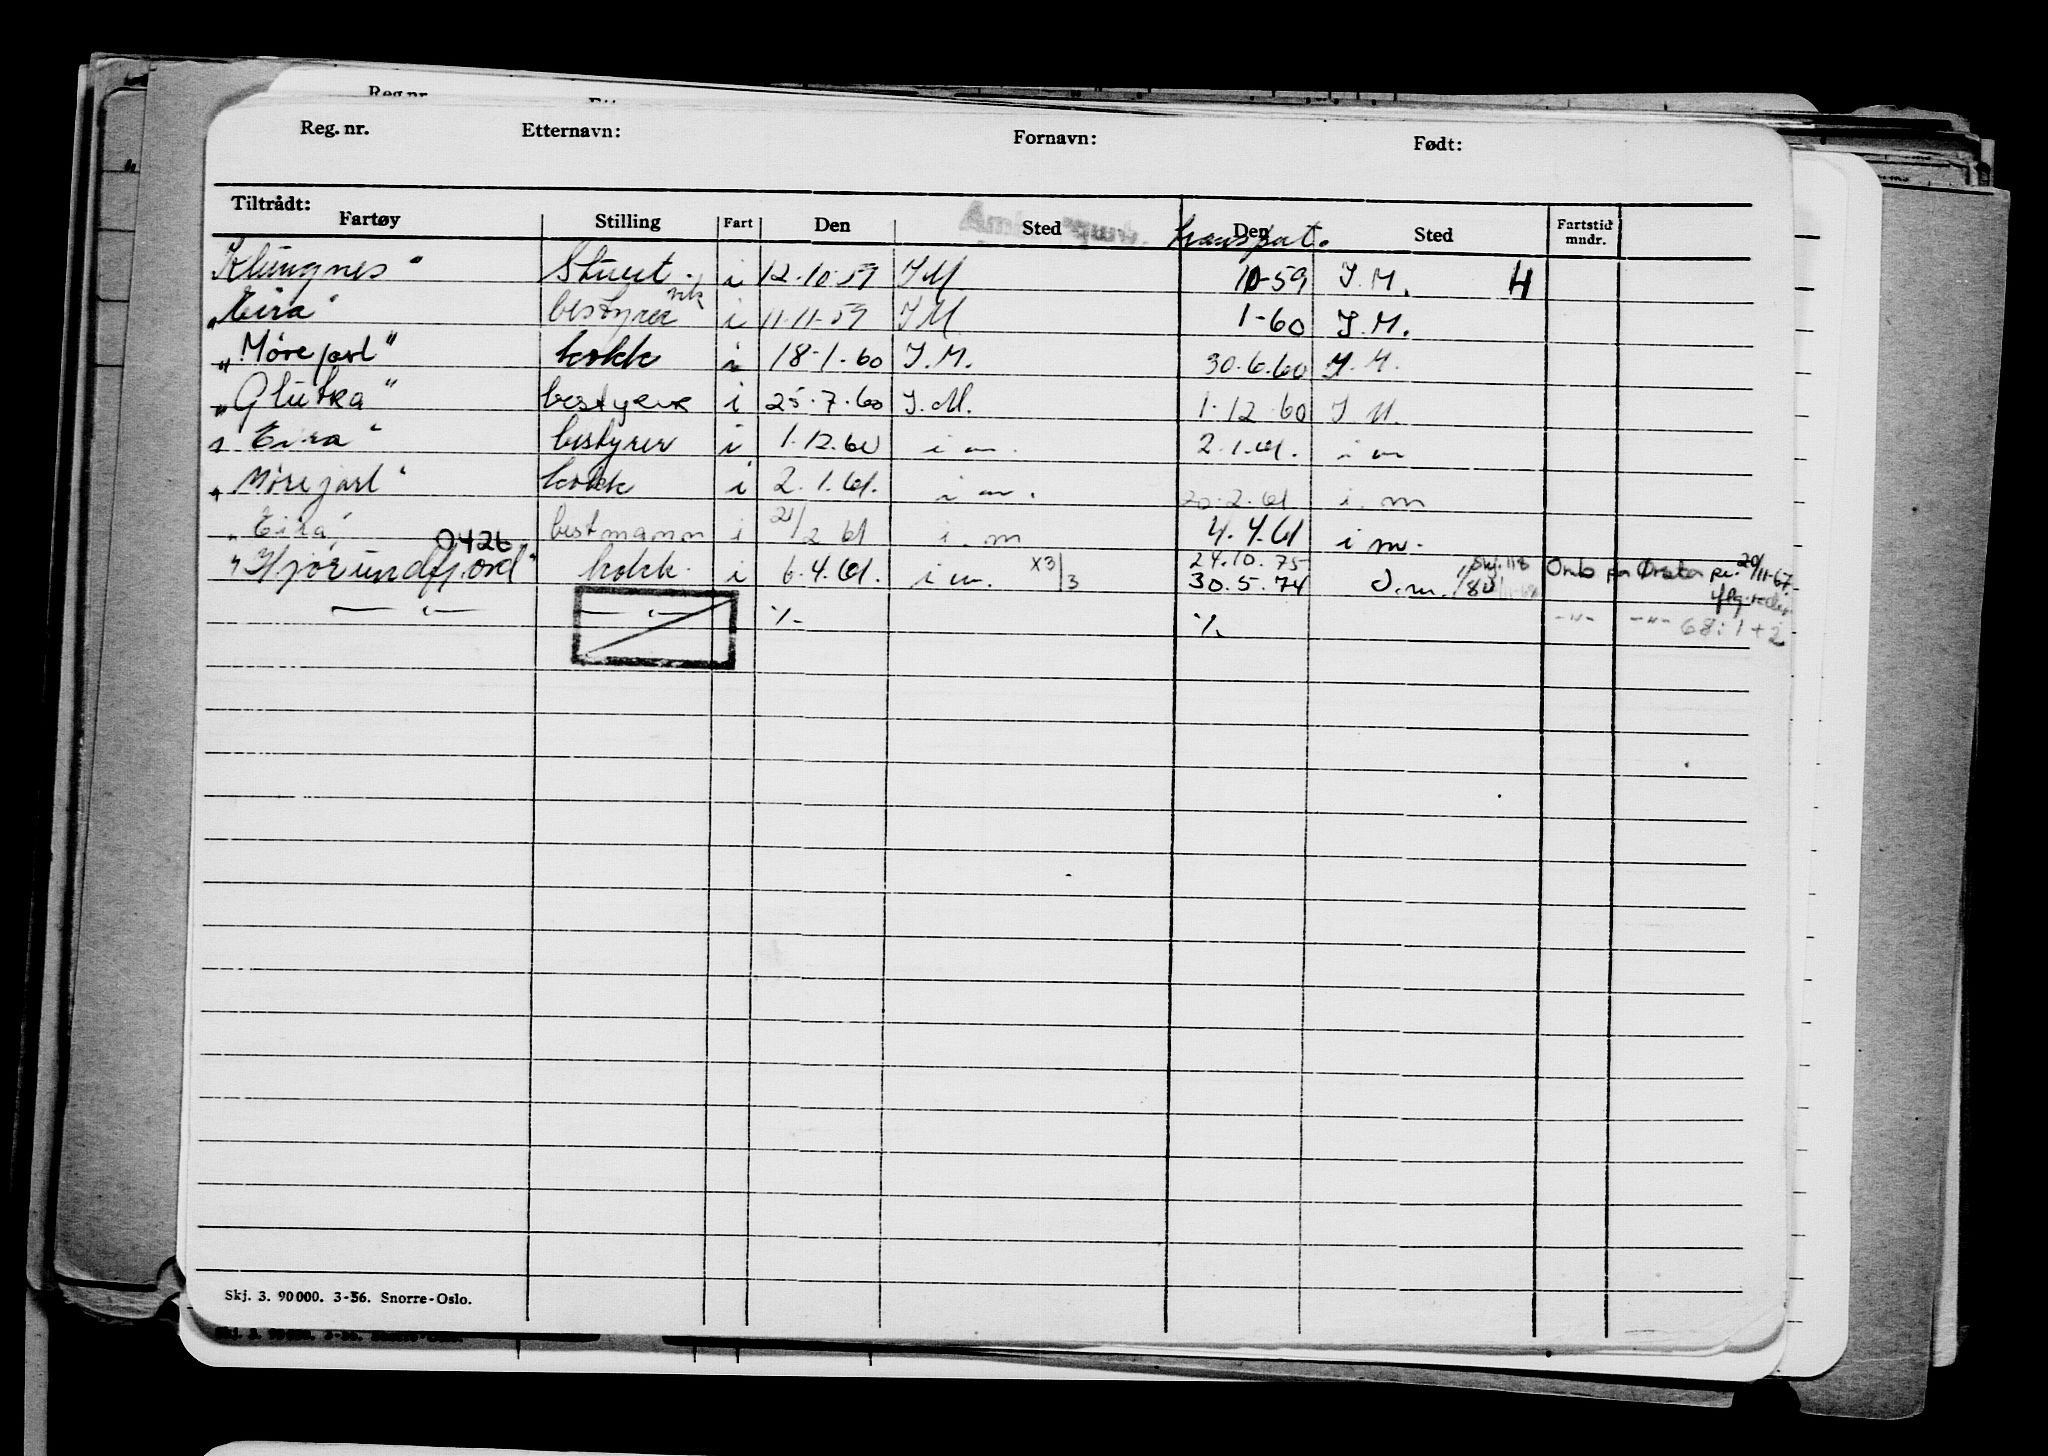 Reg. nr. Etternavn: Fornavn: Født:
Tiltrådt:
Fartøy Stilling Fart Den Sted Den Sted Fartstid mndr.
transport.
Klungnes" Stuert i 12.10.59 I M 10-59 I. M. 4
"Eira" bestyrer vik i 11-11-59 I M 1-60 I. M.
"Mørejarl" kokk i 18-1-60 I. M. 30.6.60 I. M.
"Glutra" bestyrer i 25.7.60 I. M. 1.12.60 I M.
"Eira" bestyrer i 1.12.60 i m. 2.1.61. i m
"Mørejarl" kokk i 2.1.61. i m. 20.2.61 i. m
"Eira" bestmann i 21/2 61 i. m 4.4.61 i m.
0426
"Hjørundfjord" kokk. i 6.4.61. i m. x3/3 24.10.75 30.5.74 I.m. 180 Skj. 118 Omb på Ørsta pr. 20/11-67.
— " — — " — % % -"- -"- 68: 1+2
Skj. 3. 90000. 3-56. Snorre-Oslo.